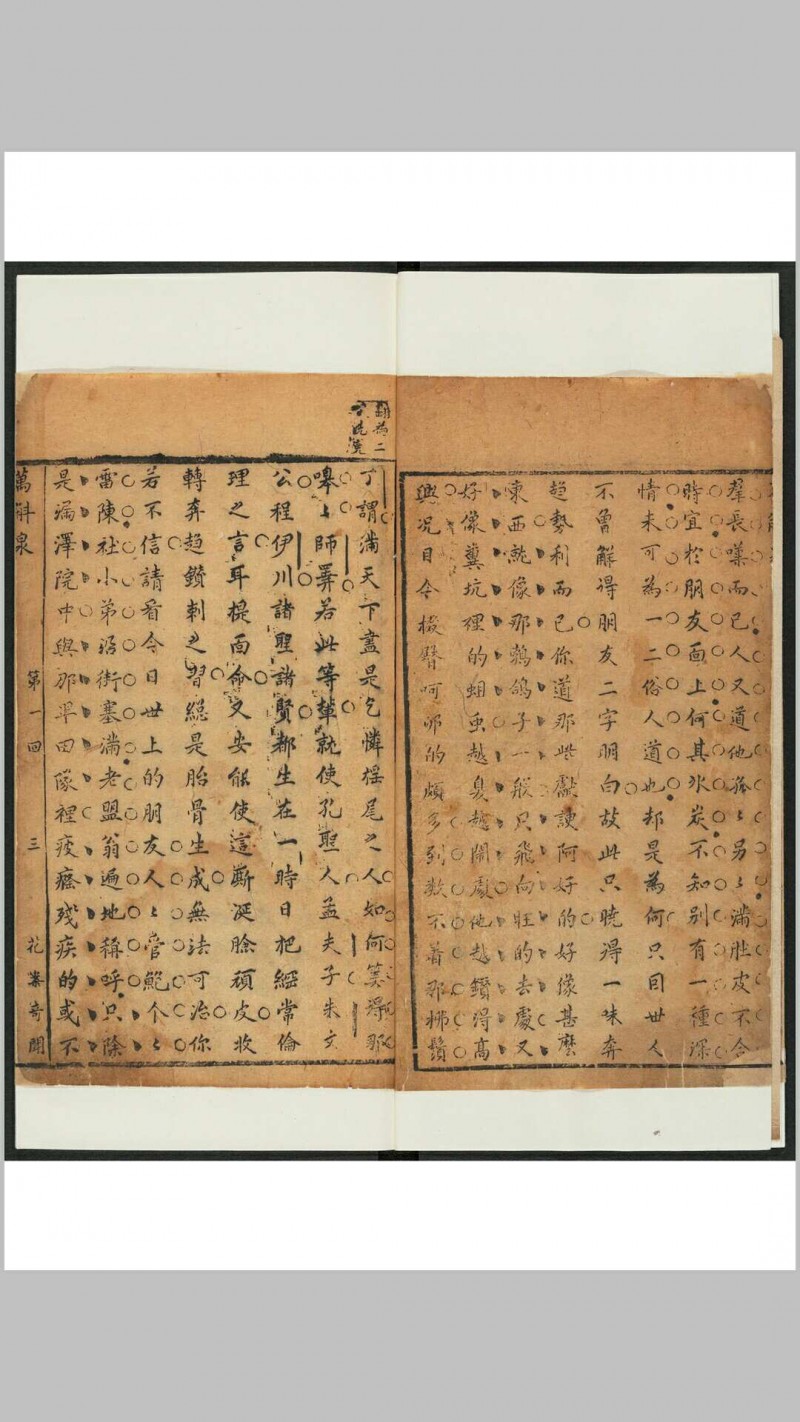 羣長嘆而已人又道他孤〻另〻滿肚皮不合
時宜於朋友面上何其氷炭不知別有一種深
情未可為一二俗人道也却是為何只因世人
不曾解得朋友二字明白故此只曉得一味奔
趋勢利而已你道那些獻諛阿好的好像甚麽
東西就像那鵓鴿子一般只飛向旺的去處又
好像糞坑裡的蛆虫越臭越鬧處他越鑽得高
興况目今掇臀呵卵的頗多到數不着那捋鬚
丁謂滿天下盡是乞憐摇尾之人如何算得那
嗥〻師羣若此等輩就使孔聖人孟夫子朱文
公程伊川諸聖諸賢都生在一時日把經常倫
理之言耳提面命又安能使這靦涎臉頑皮收
轉奔趋鑽刺之習總是胎骨生成無法可治你
若不信請看今日世上的朋友人〻管鮑个〻
雷陳社小弟沿街塞滿老盟翁遍地稱呼只除
是漏澤院中與那卑田隊裡疲癃殘疾的或不
萬斛泉
第一回
三